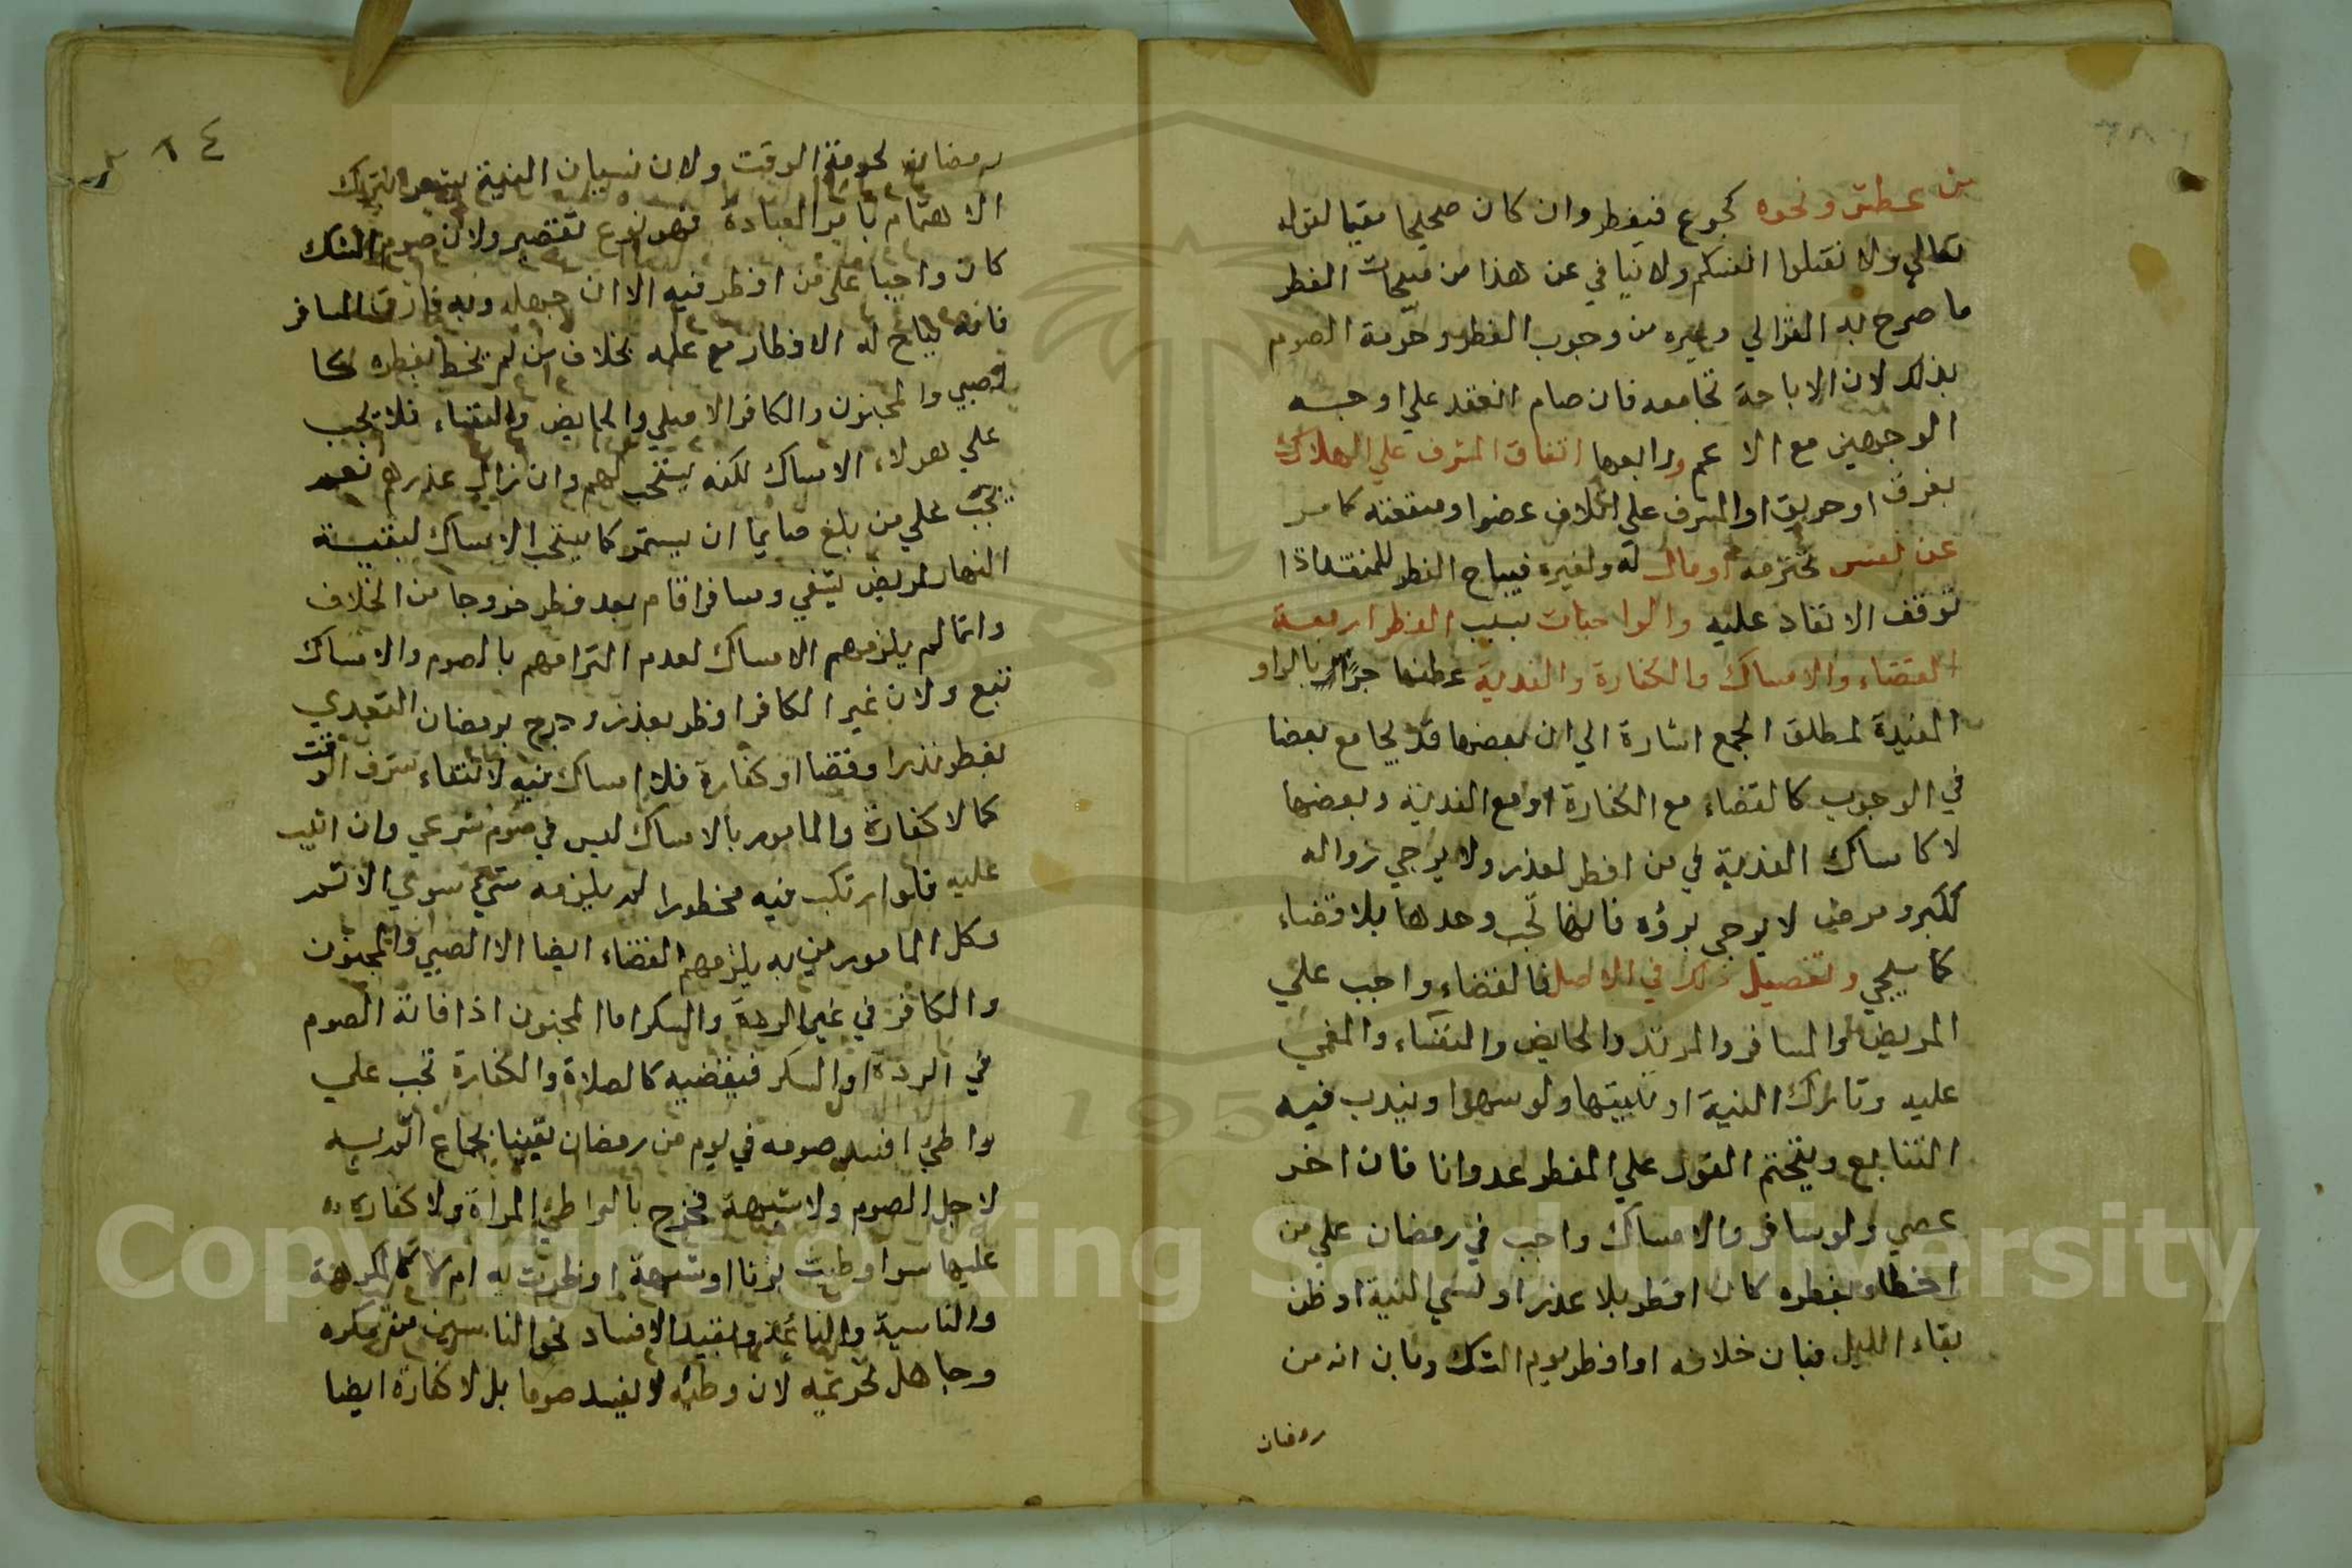 من عطش ونحوه كجوع فيفطر وان كان صحيحا مقيما لقوله
تعالي ولا تقتلوا انفسكم ولا ينافي عن هذا من مبيحات الفطر
ما صرح به الغزالي وغيره من وجوب الفطر وحرمة الصوم
بذلك لان الاباحة تجامعه فان صام انعقد علي اوجه
الوجهين مع الاثم ورابعها اتفاق المشرف علي الهلاك
بغرق او حريق او المشرف علي اتلاف عضو او منفعته كامر
عن نفس محترمه او مال له ولغيره فيباح الفطر للمنقذ اذا
توقف الانقاذ عليه والواجبات بسبب الفطر اربعة
القضاء والامساك والكفارة والفدية عطفها جزاز بالواو
المفيدة لمطلق الجمع اشارة الي ان بعضها قد يجامع بعضا
في الوجوب كالقضاء مع الكفارة او مع الفدية وبعضها
لا كامساك الفدية في من افطر لعذر ولا يرجي زواله
ككبر ومرض لا يرجي برؤه فانها تجب وحدها بلا قضاء
كما سيجي وتفصيل ذلك في الاصل فالقضاء واجب علي
المريض والمسافر والمرتد والحايض والنفساء والمغمي
عليه وتارك النية او تبييتها ولو سهوا ويندب فيه
التتابع ويتحتم الفور علي المفطر عدوانا فان اخر
عصي ولو سافر والامساك واجب في رمضان علي من
اخطا بفطره كان افطر بلا عذر او نسي النية او ظن
بقاء الليل فبان خلافه او افطر يوم الشك وبان انه من
رمضان
٦٤
رمضان لحرمة الوقت ولان نسيان النية يشعر بترك
الاهتمام بامر العبادة فهو نوع تقصير ولان صوم الشك
كان واجبا علي من افطر فيه الا ان جهله وبه فارق المسافر
فانه يباح له الافطار مع علمه بخلاف من لم يخط بفطره كا
لصبي والمجنون والكافر الاصلي والحايض والنفساء فلا يجب
علي هولاء الامساك لكنه يستحب لهم وان زال عذرهم نعم
يجب علي من بلغ صايما ان يستمر كما يستحب الامساك لبقية
النهار لمريض شفي ومسافر اقام بعد فطر خروجا من الخلاف
وانما لم يلزمهم الامساك لعدم التزامهم بالصوم والامساك
تبع ولان غير الكافر افطر بعذر وخرج برمضان التعدي
بفطر نذر او قضا او كفارة فلا امساك فيه لانتفاء شرف الوقت
كما لا كفارة والمامور بالامساك ليس في صوم شرعي وان اثيب
عليه فلو ارتكب فيه محظورا لم يلزمه شي سوي الاثم
وكل المامورين به يلزمهم القضاء ايضا الا الصبي والمجنون
والكافر في غير الردة والسكر اما المجنون اذا فاته الصوم
في الردة او السكر فيقضيه كالصلاة والكفارة تجب علي
واطي افسد صومه في يوم من رمضان يقينا بجماع اثم به
لاجل الصوم ولا شبهة فخرج بالواطي المراة ولا كفارة
عليها سوا وطيت بزنا او شبهة افطرت به ام لا كالمكرهة
والناسية والنائمة وبقيد الافساد نحو الناسي ومكره
وجاهل تحريمه لان وطئه لا يفسد صوما بل لا كفارة ايضا
Copyright © King Saud University
195